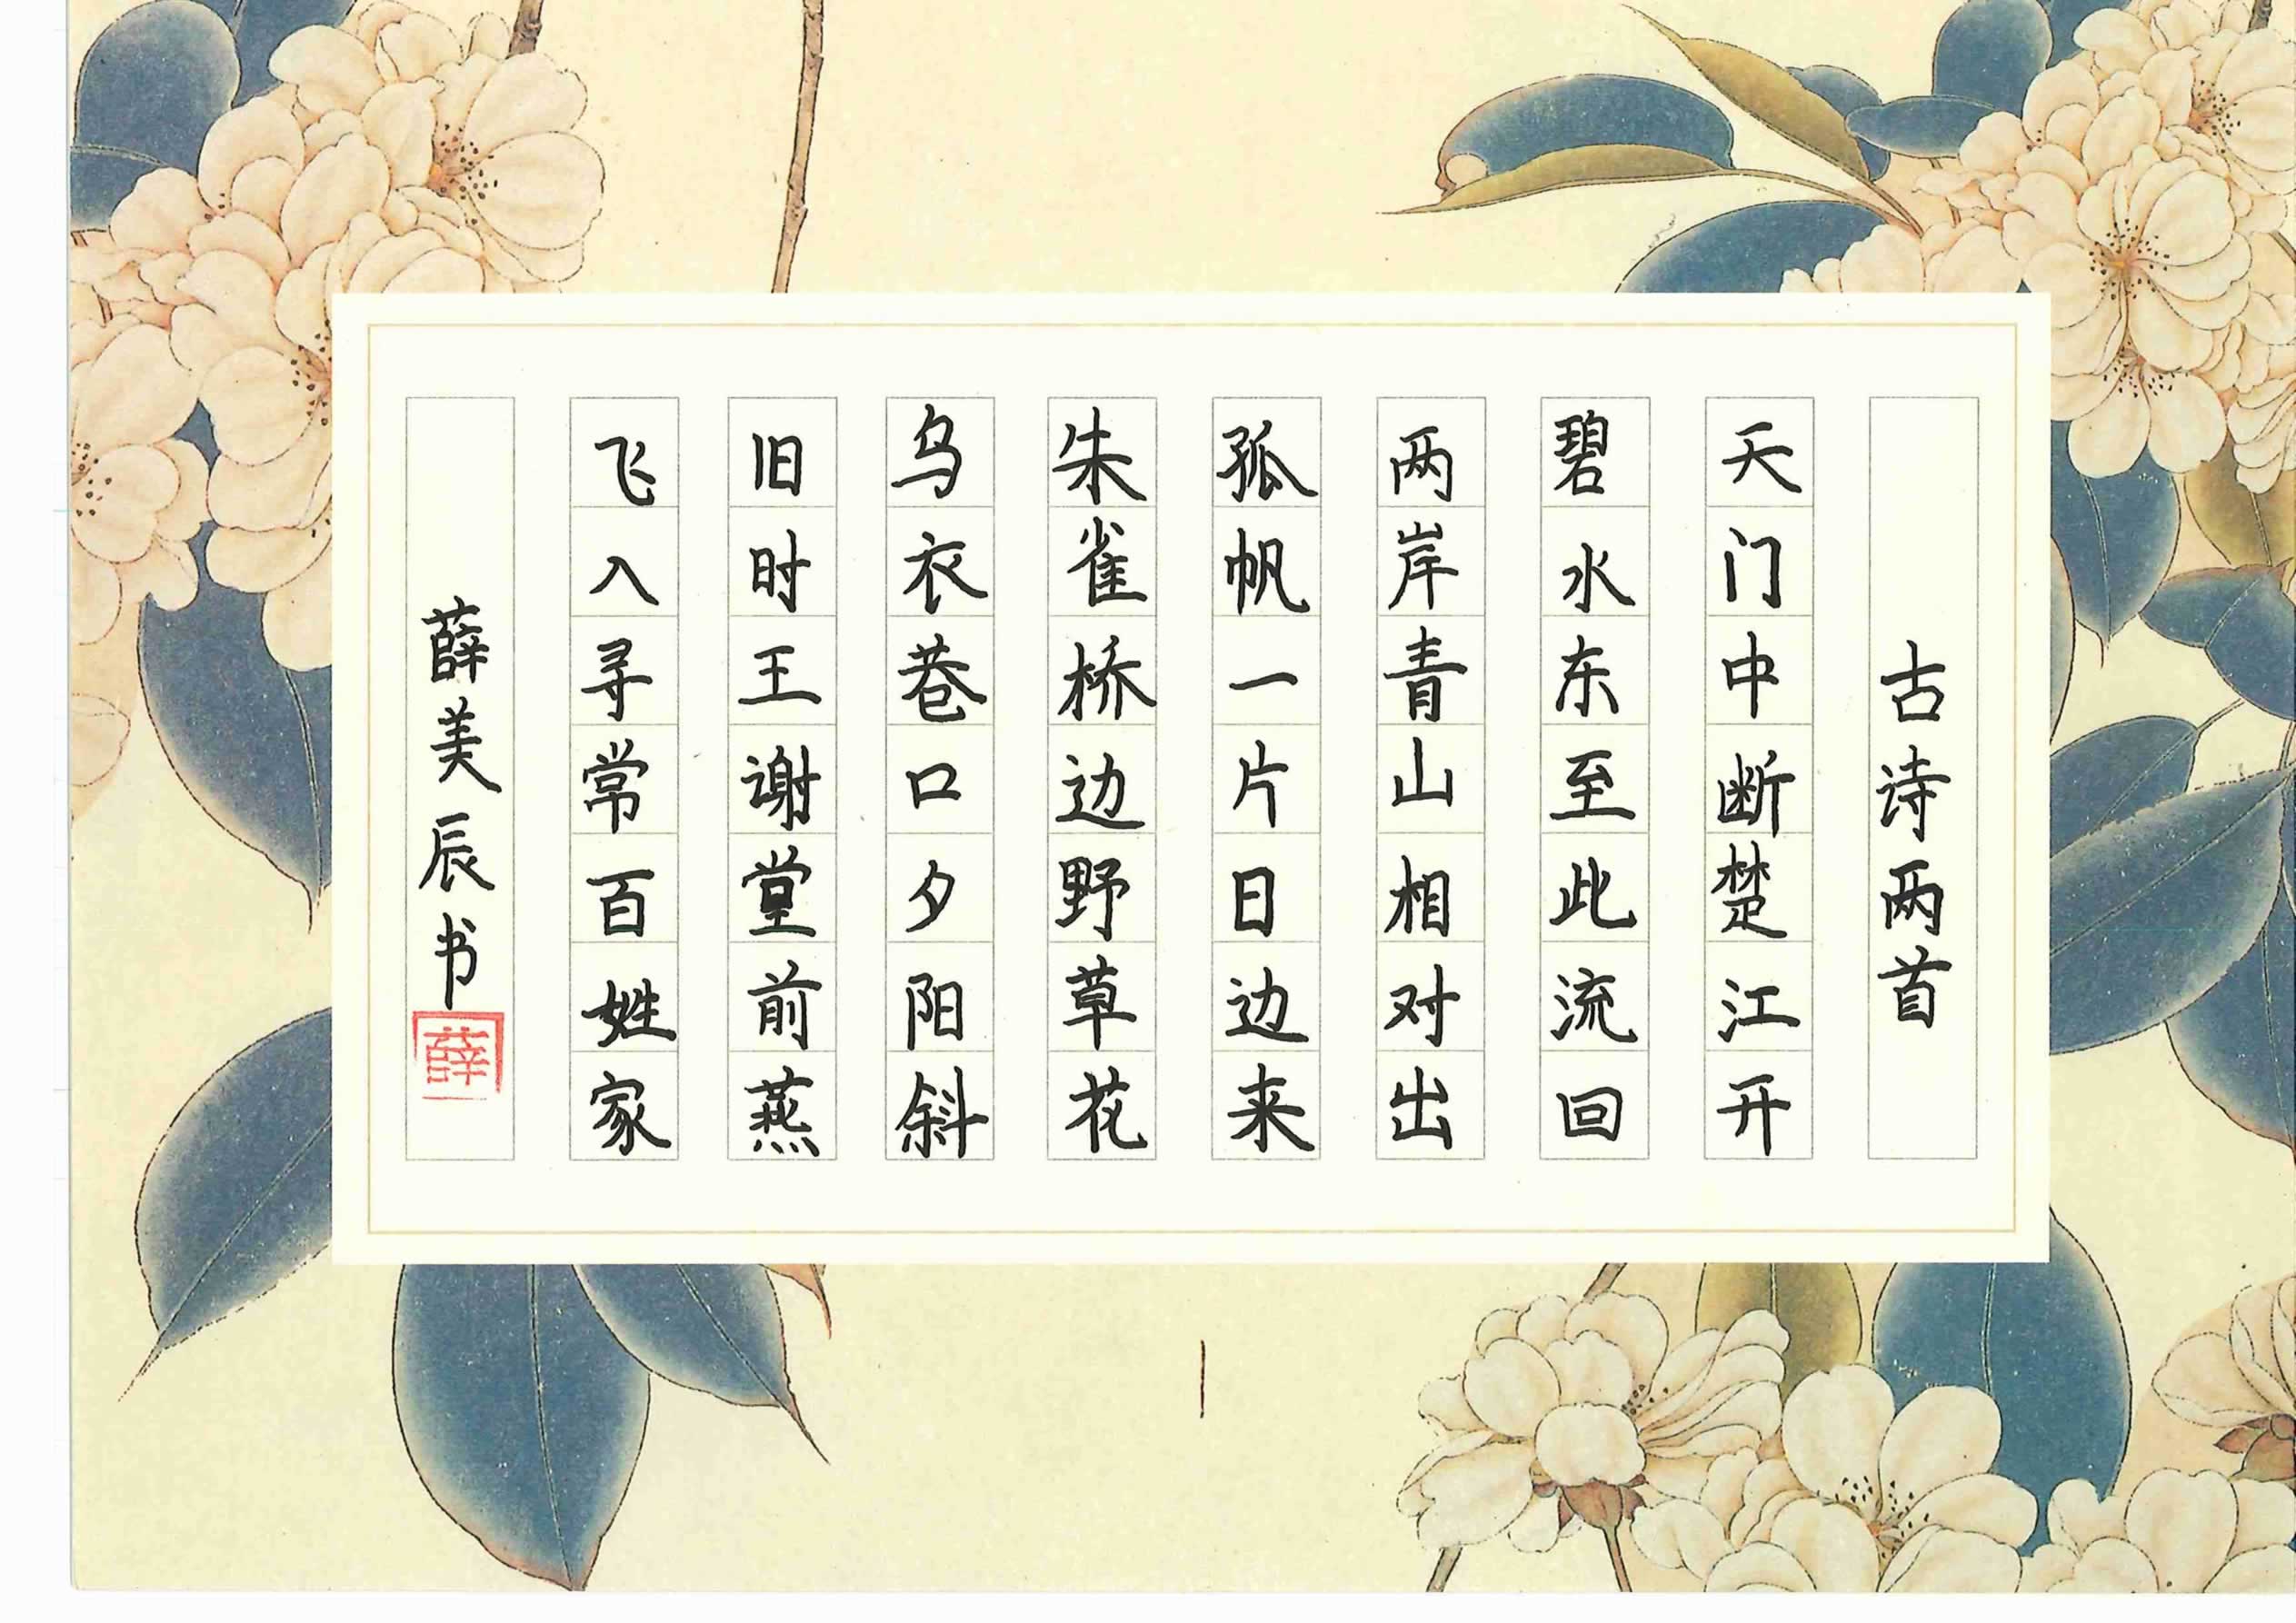 古诗两首
天门中断楚江开
碧水东至此流回
两岸青山相对出
孤帆一片日边来
朱雀桥边野草花
乌衣巷口夕阳斜
旧时王谢堂前燕
飞入寻常百姓家
薛美辰书
薛